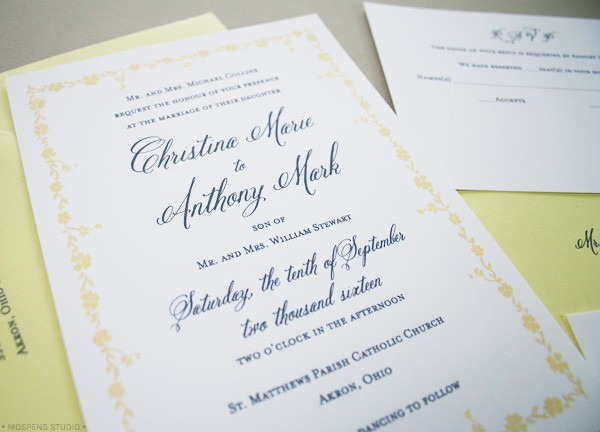 Mr. and Mrs. Michael Collins
request the honour of your presence
at the marriage of their daughter
Christina Marie
to
Anthony Mark
son of
Mr. and Mrs. William Stewart
Saturday, the tenth of September
two thousand sixteen
two o'clock in the afternoon
St. Matthews Parish Catholic Church
Akron, Ohio
dancing to follow
RSVP
of your reply is requested
We have reserved seat(s) in
Name(s)
Accepts
Mr.
Akron, Ohio
• MOSPENS STUDIO •